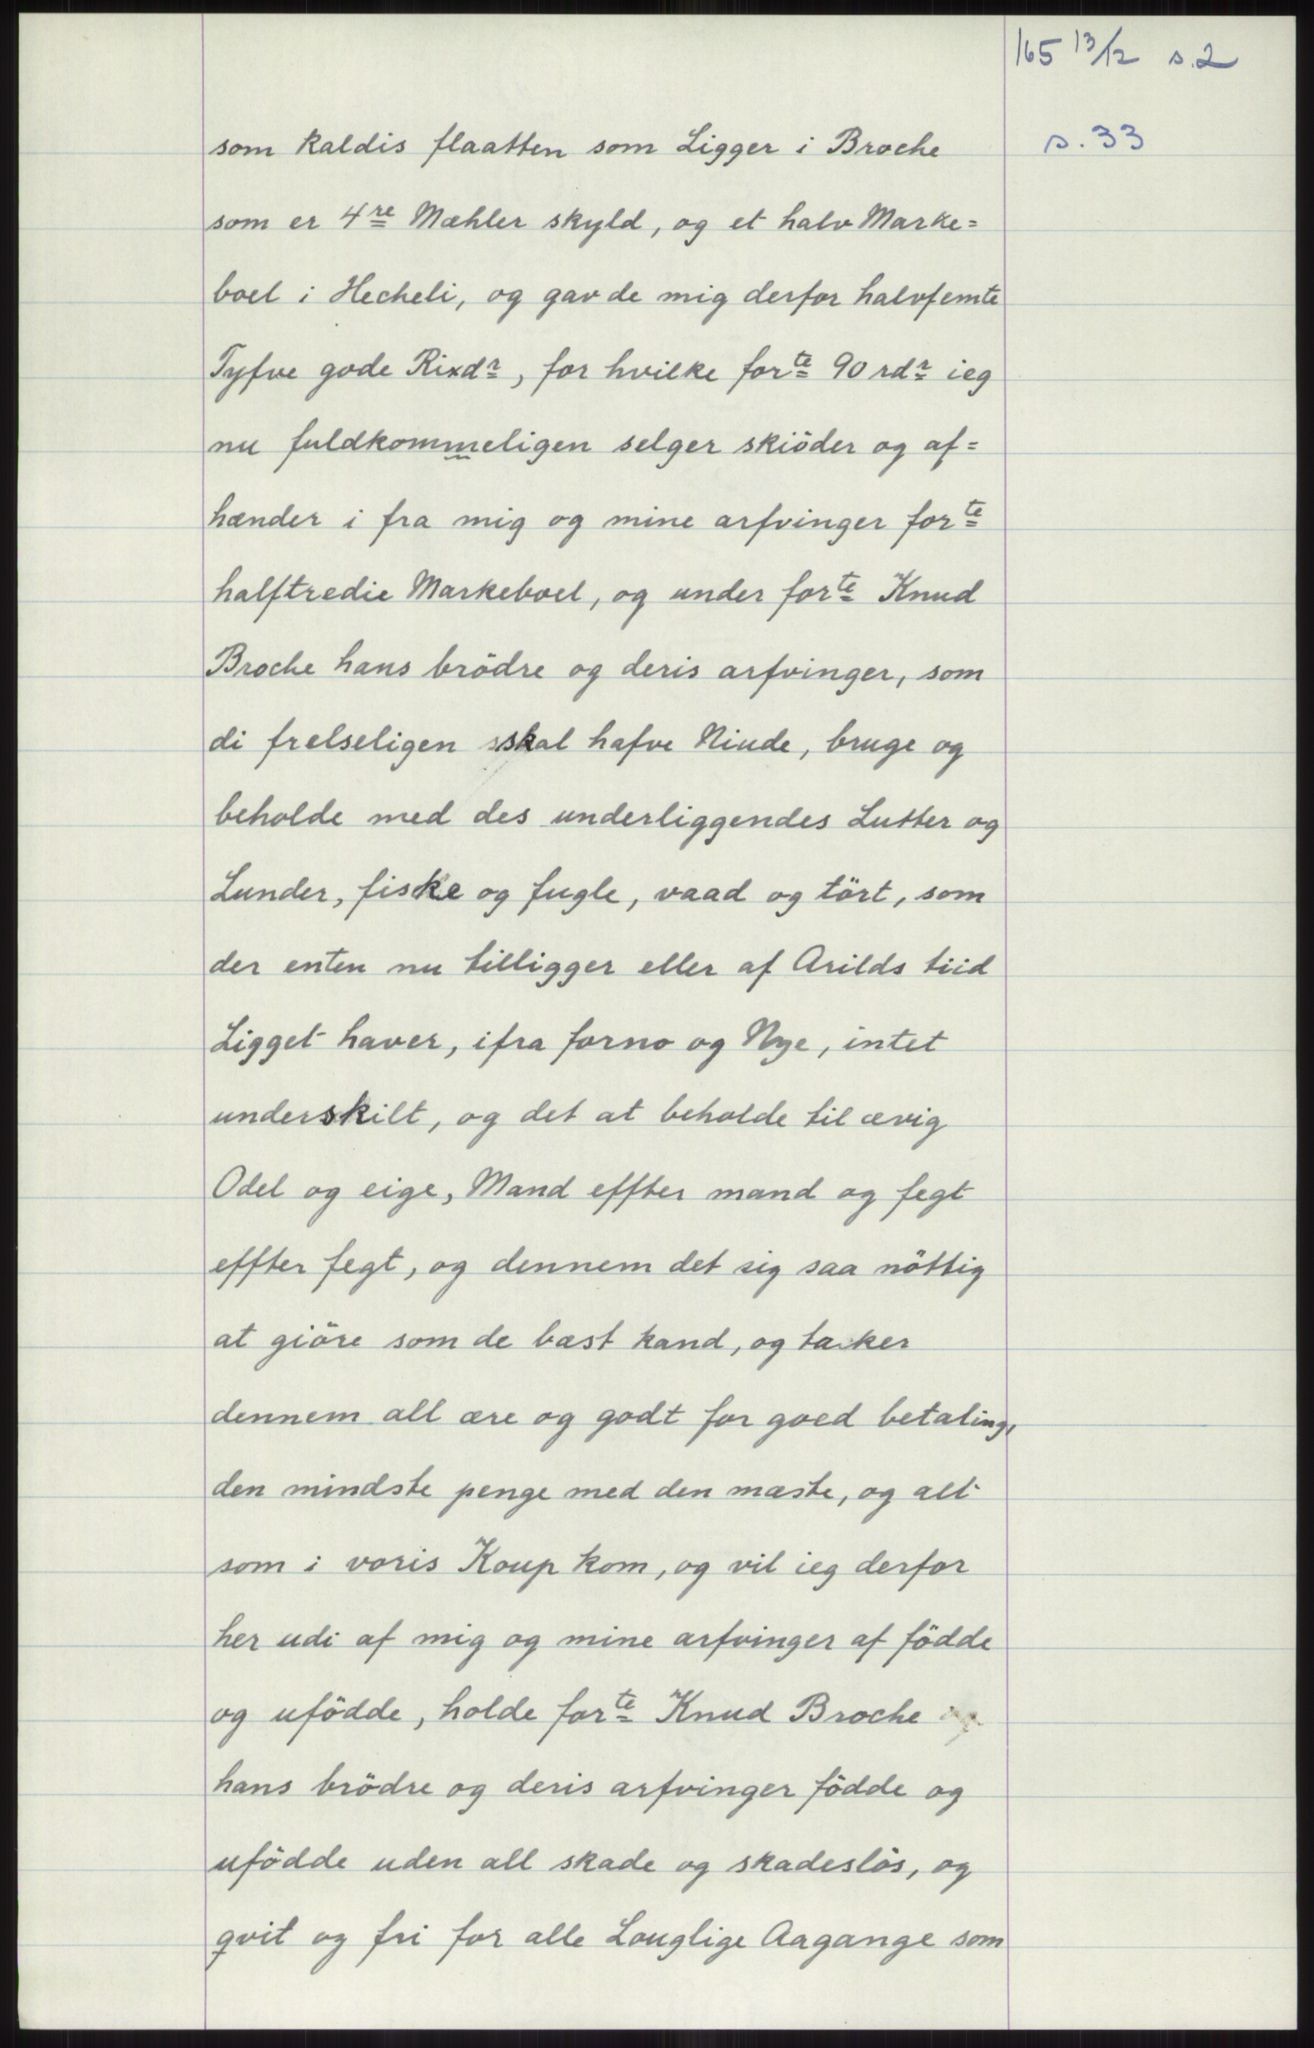 165 13/12 s.2
s. 33
som kaldis flaatten som Ligger i Broche
som er 4re Mæhler skyld, og et halv Marke=
boel i Hecheli, og gav de mig derfor halvfemte
Tyfve gode Rixdr, for hvilke forte 90 rdr ieg
nu fuldkommeligen selger skiöder og af=
hænder i fra mig og mine arfvinger forte
halftredie Markeboel, og under forte Knud
Broche hans brödre og deris arfvinger, som
di frelseligen skal hafve Niude, bruge og
beholde med des underliggendes Lutter og
Lunder, fiske og fugle, vaad og tört, som
der enten nu tilligger eller af Arilds tiid
Ligget haver, ifra forno og Nye, intet
underskilt, og det at beholde til ævig
Odel og eige, Mand effter mand og fegt
effter fegt, og dennem det sig saa nöttig
at giöre som de bæst kand, og tacker
dennem all ære og godt for goed betaling,
den mindste penge med den mæste, og alt
som i voris Koup kom, og vil ieg derfor
her udi af mig og mine arfvinger af födde
og ufödde, holde forte Knud Broche
hans brödre og deris arfvinger födde og
ufödde uden all skade og skadeslös, og
qvit og fri for alle Louglige Aagange som